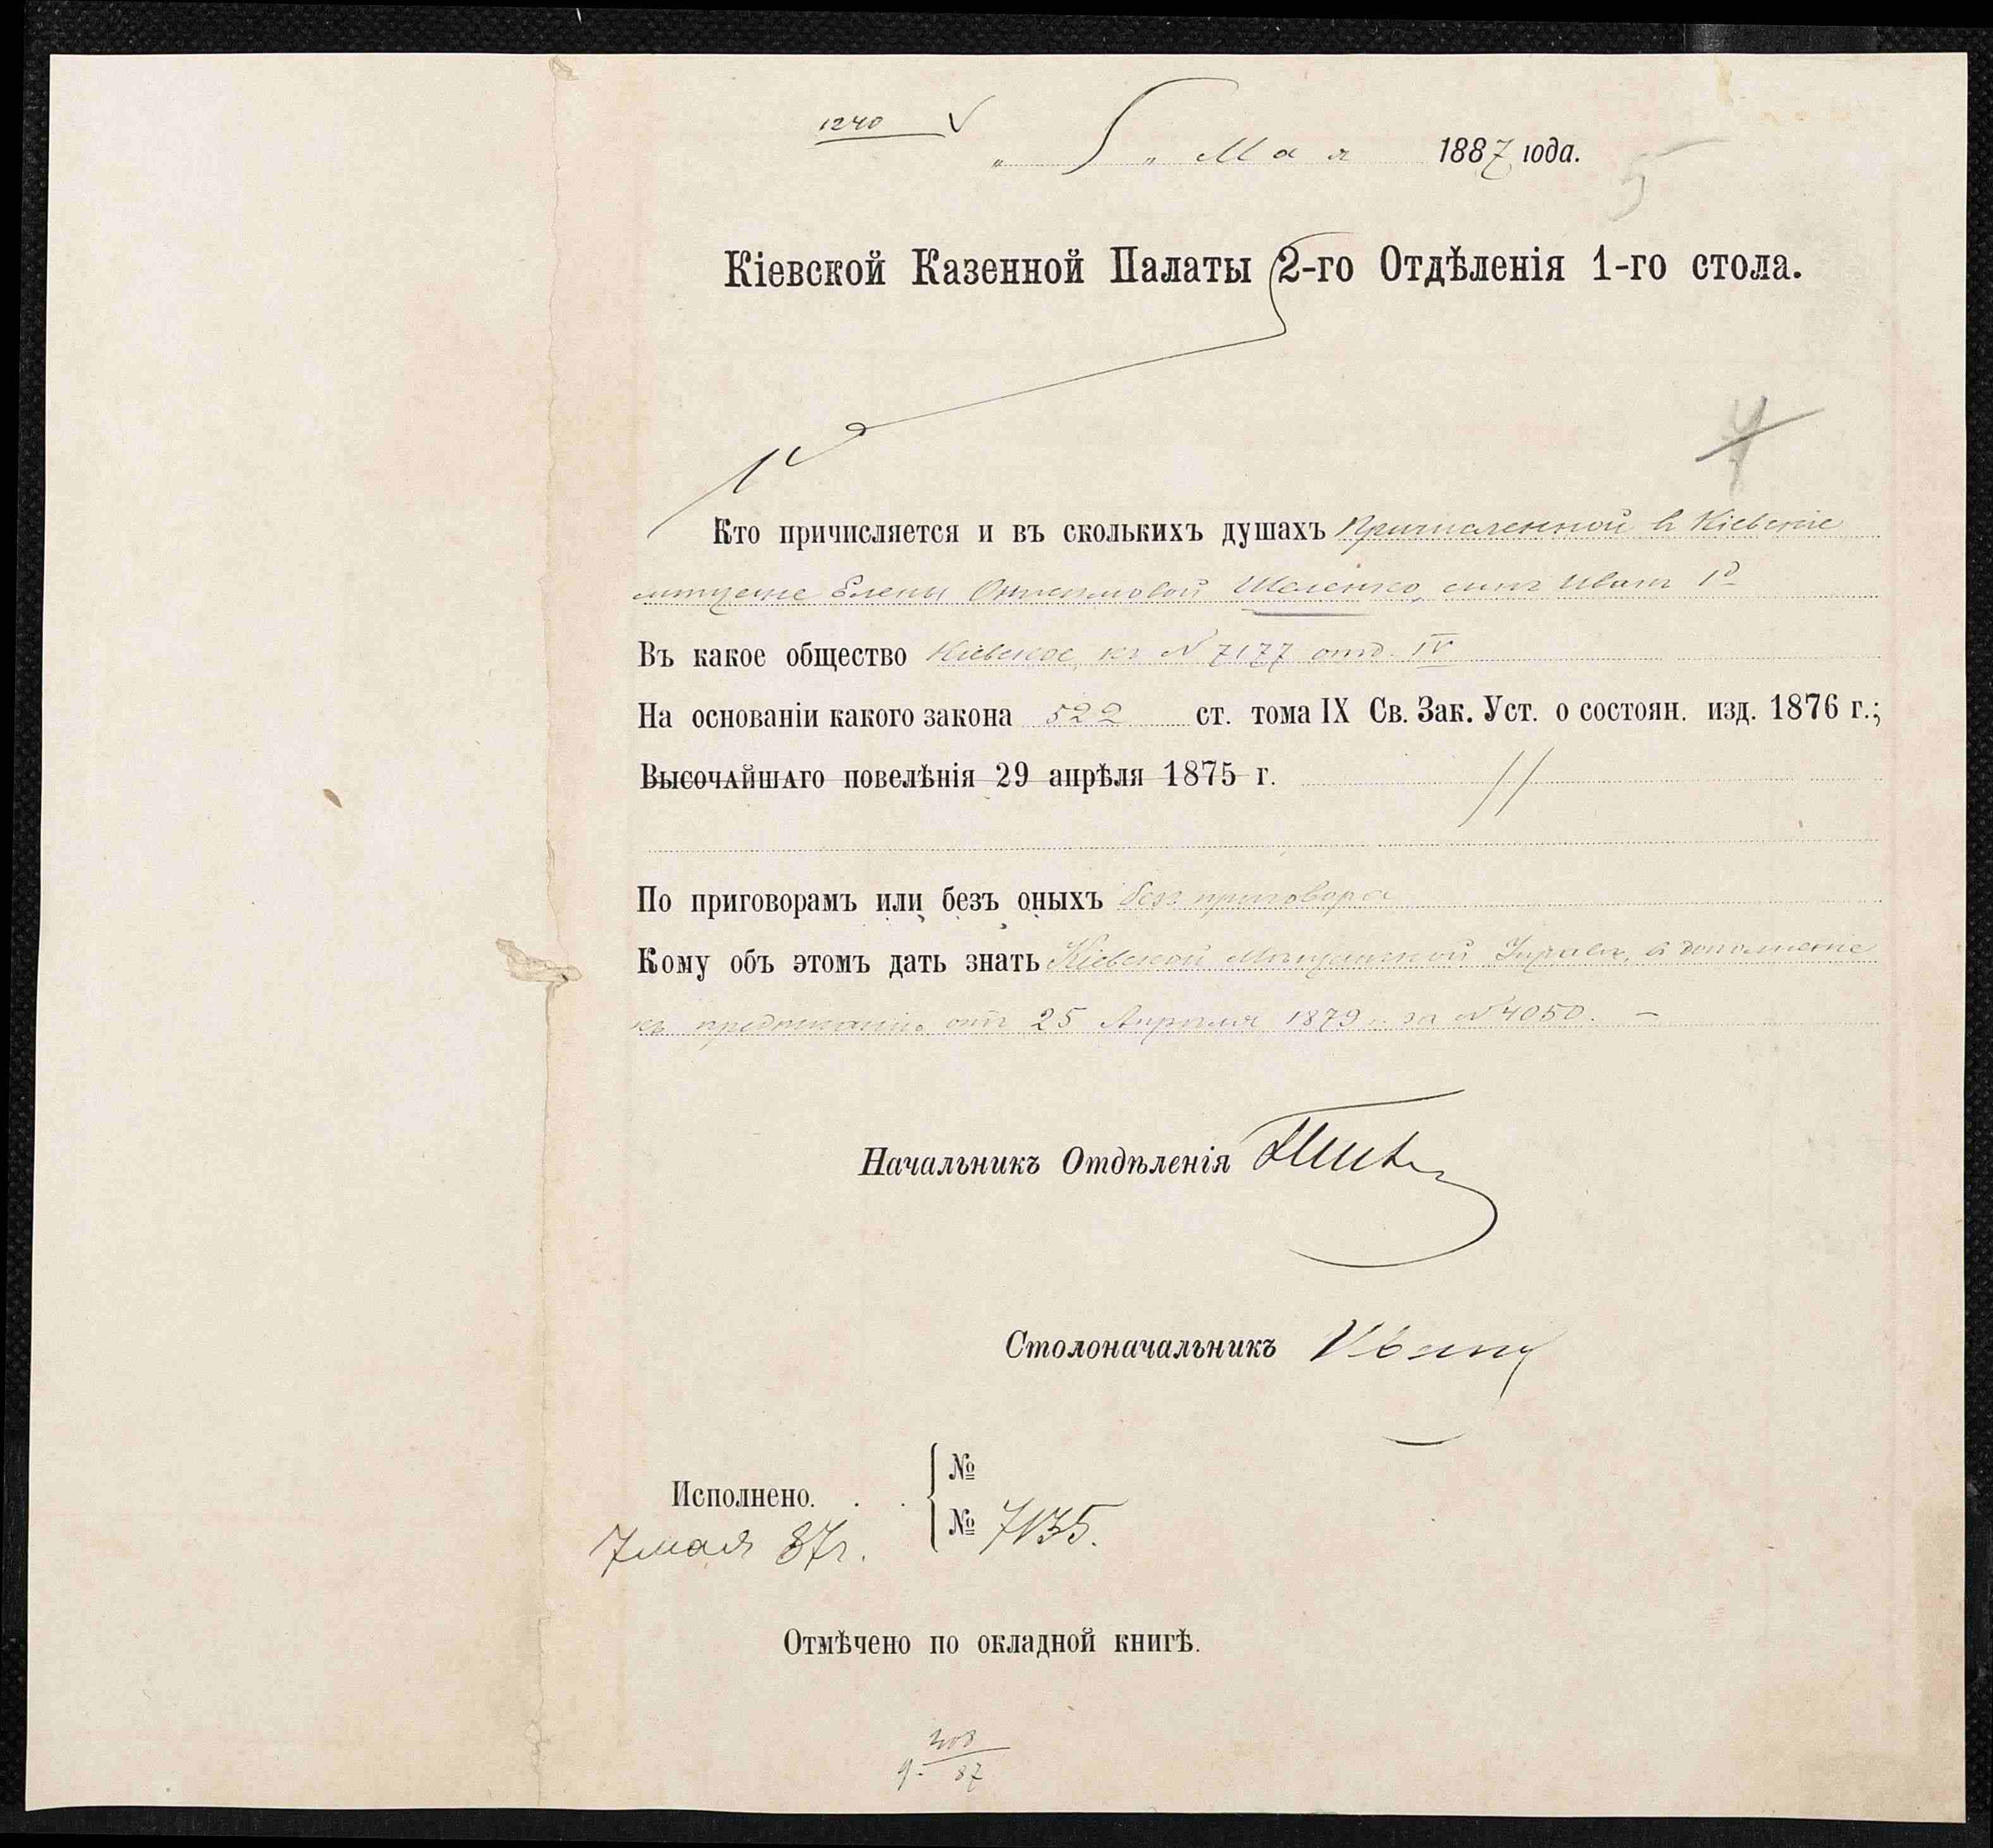 1240
„ 5 „ Мая 1887 года.
5
Кіевской Казенной Палаты 2-го Отдѣленія 1-го стола.
Кто причисляется и въ сколькихъ душахъ Причисленной в Кіевскіе
мѣщане Елены Онисимовой сынъ Иванъ 1 д
Въ какое общество Кіевское, къ № 7177 отд. IV
На основаніи какого закона 522 ст. тома IX Св. Зак. Уст. о состоян. изд. 1876 г.;
Высочайшаго повелѣнія 29 апрѣля 1875 г.
По приговорамъ или безъ оныхъ без приговора
Кому объ этомъ дать знать Кіевской Мѣщанской Управѣ, в дополненіе
къ предписанію отъ 25 Апрѣля 1879 г. за № 4050. —
Начальникъ Отдѣленія
Столоначальникъ
Исполнено. . . №
7 мая 87 г. № 7135.
Отмѣчено по окладной книгѣ.
87